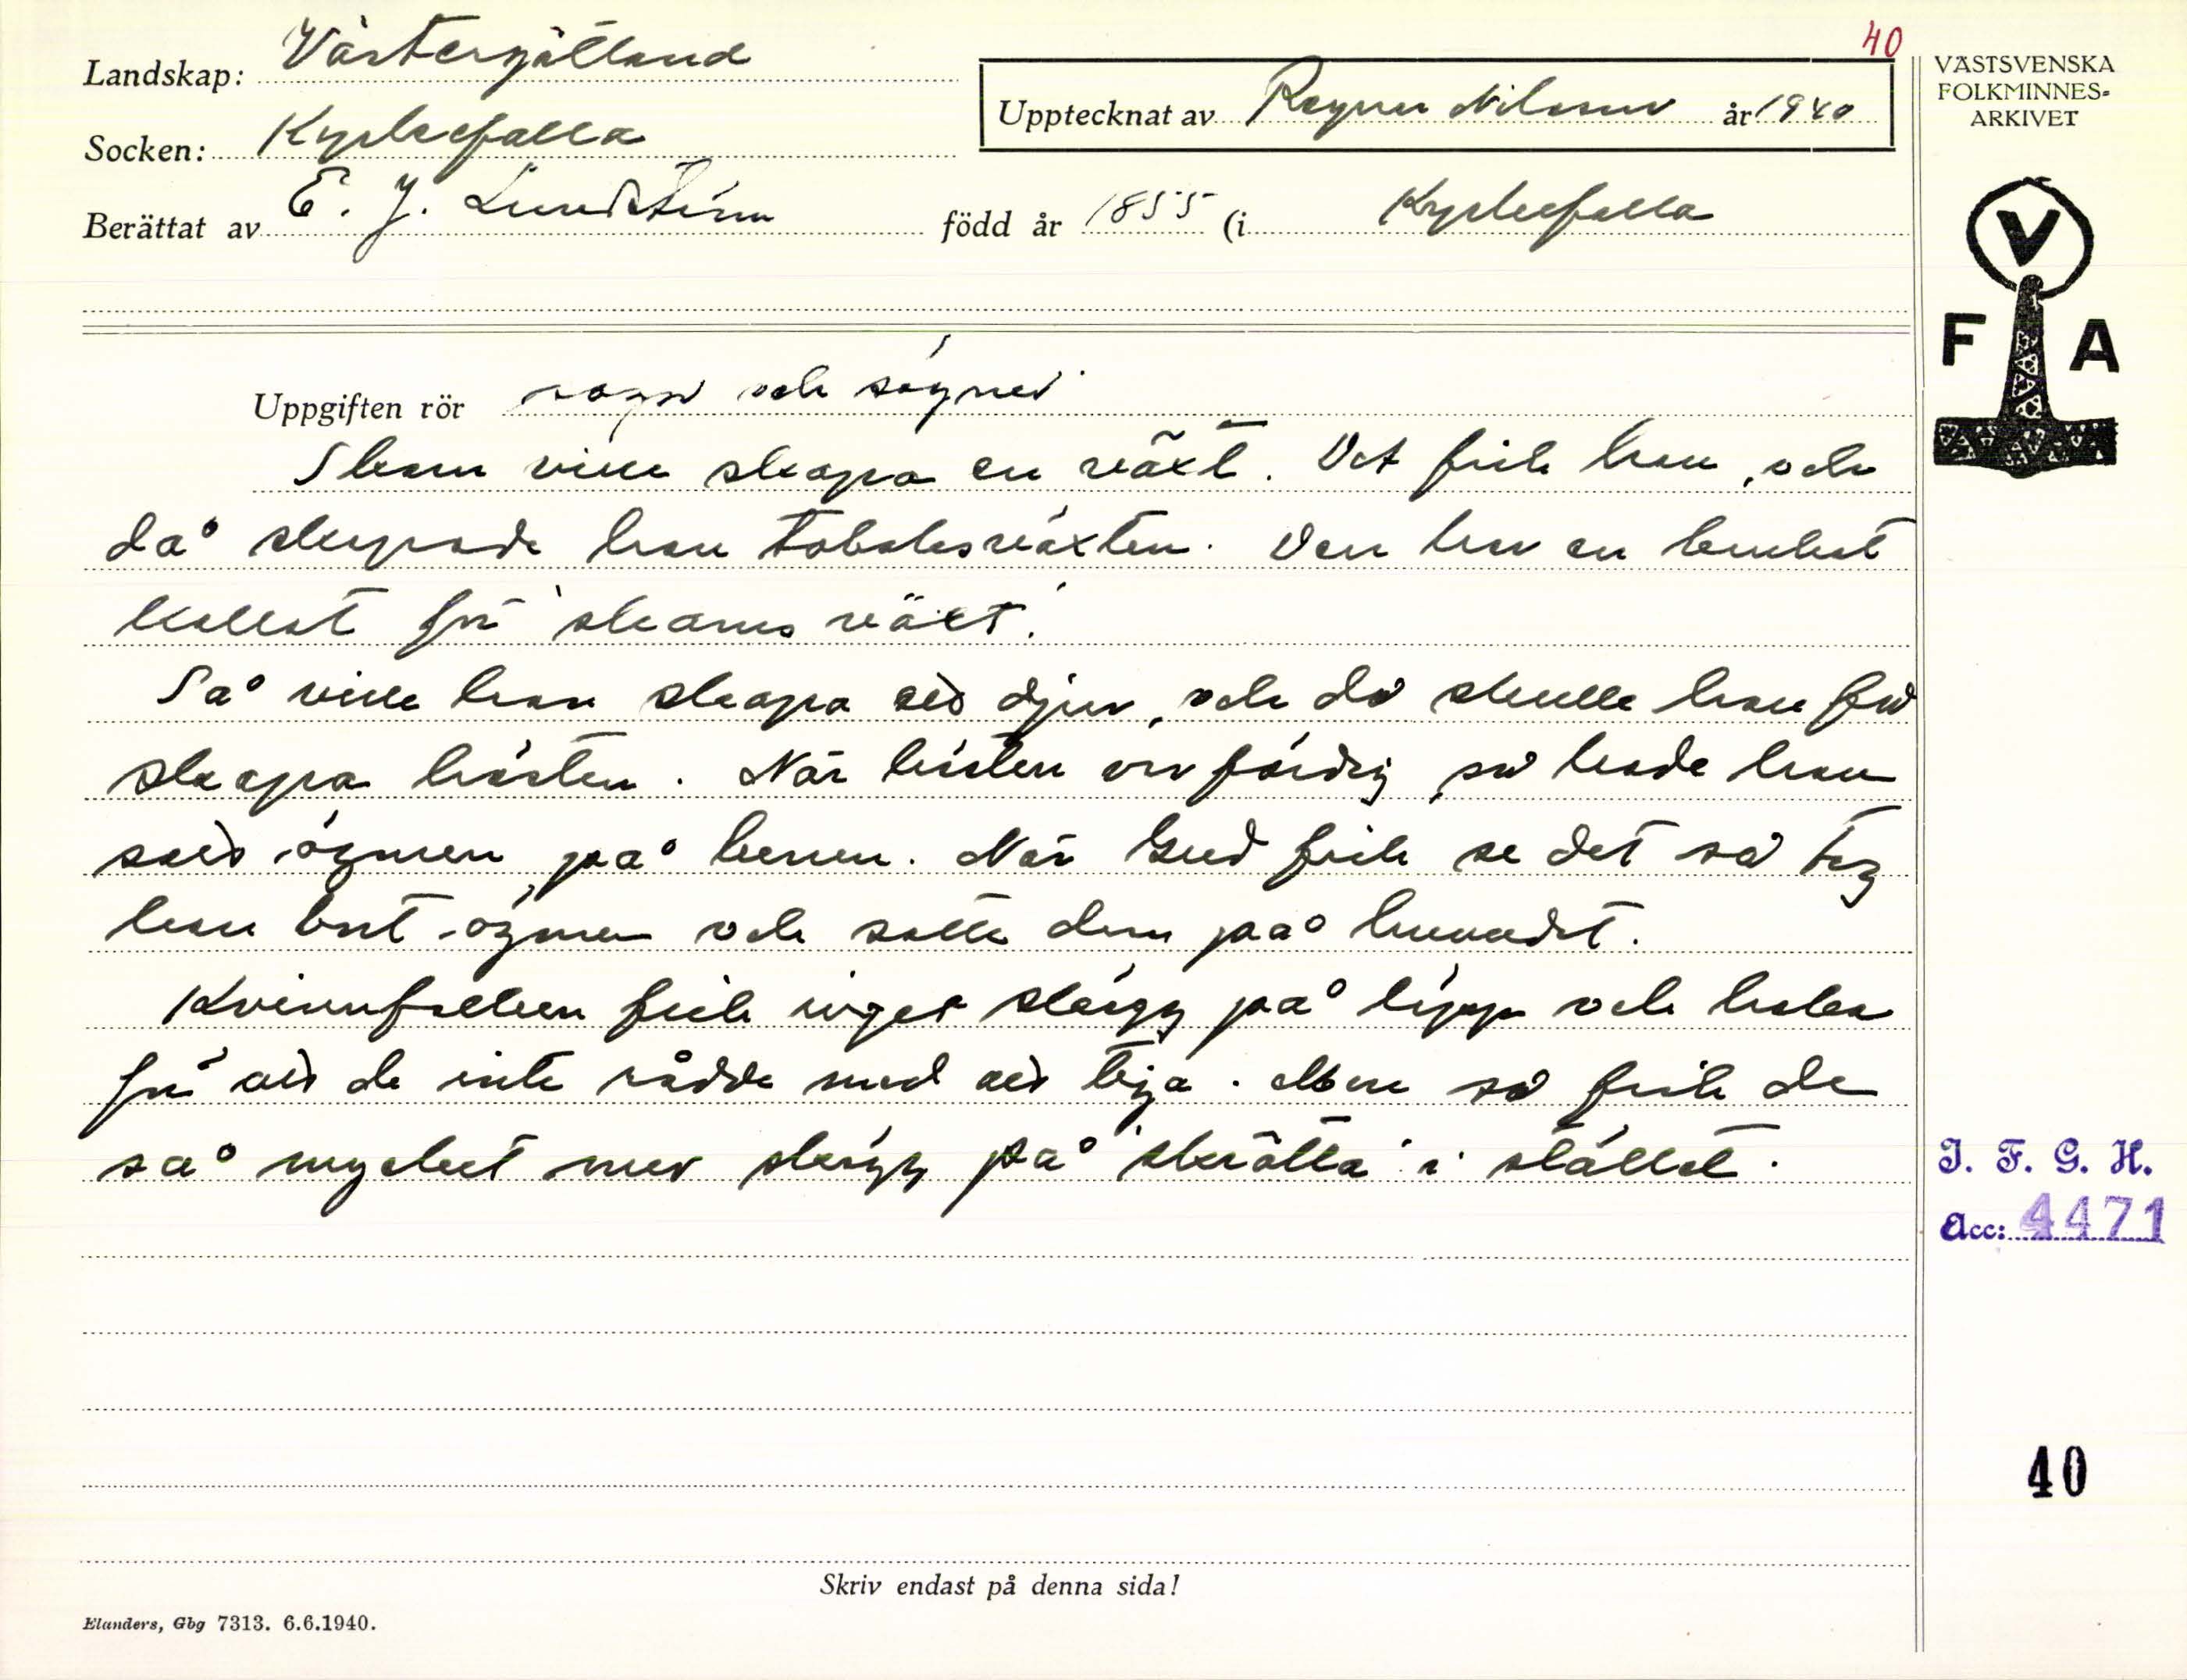 40
Landskap: Västergötland
Socken: Kyrkefalla
Berättat av E. J. Lundström född år 1855 (i Kyrkefalla
Upptecknat av Ragnar Nilsson år 1940
VÄSTSVENSKA
FOLKMINNES-
ARKIVET
V
F A
Uppgiften rör sagor och sägner
Skam ville skapa en växt. Det fick han, och
då skapade han tobaksväxten. Den har en
kallat för "skams växt".
Så ville han skapa ett djur, och då skulle han få
skapa hästen. När hästen var färdig, så hade han
satt ögonen på benen. När Gud fick se det så tog
han bort ögonen och satte dem på huvudet.
Kvinnfolken fick inget skägg på läpp och haka
för att de inte rådde med att tiga. Men så fick de
så mycket mer skägg på "skrälla" i stället.
I. F. G. H.
Acc: 4471
40
Skriv endast på denna sida!
Elanders, Gbg 7313. 6.6.1940.